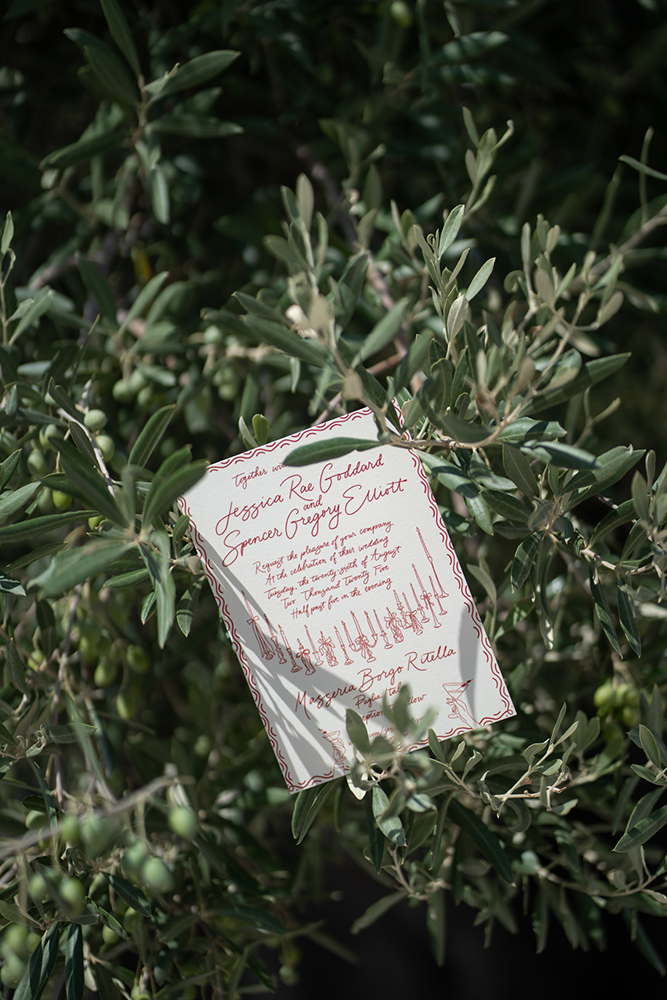 Together wi
Jessica Rae Goddard
and
Spencer Gregory Elliott
Request the pleasure of your company
At the celebration of their wedding
Tuesday, the twenty-sixth of August
Two Thousand Twenty Five
Half past five in the evening
Masseria Borgo Ritella
Puglia